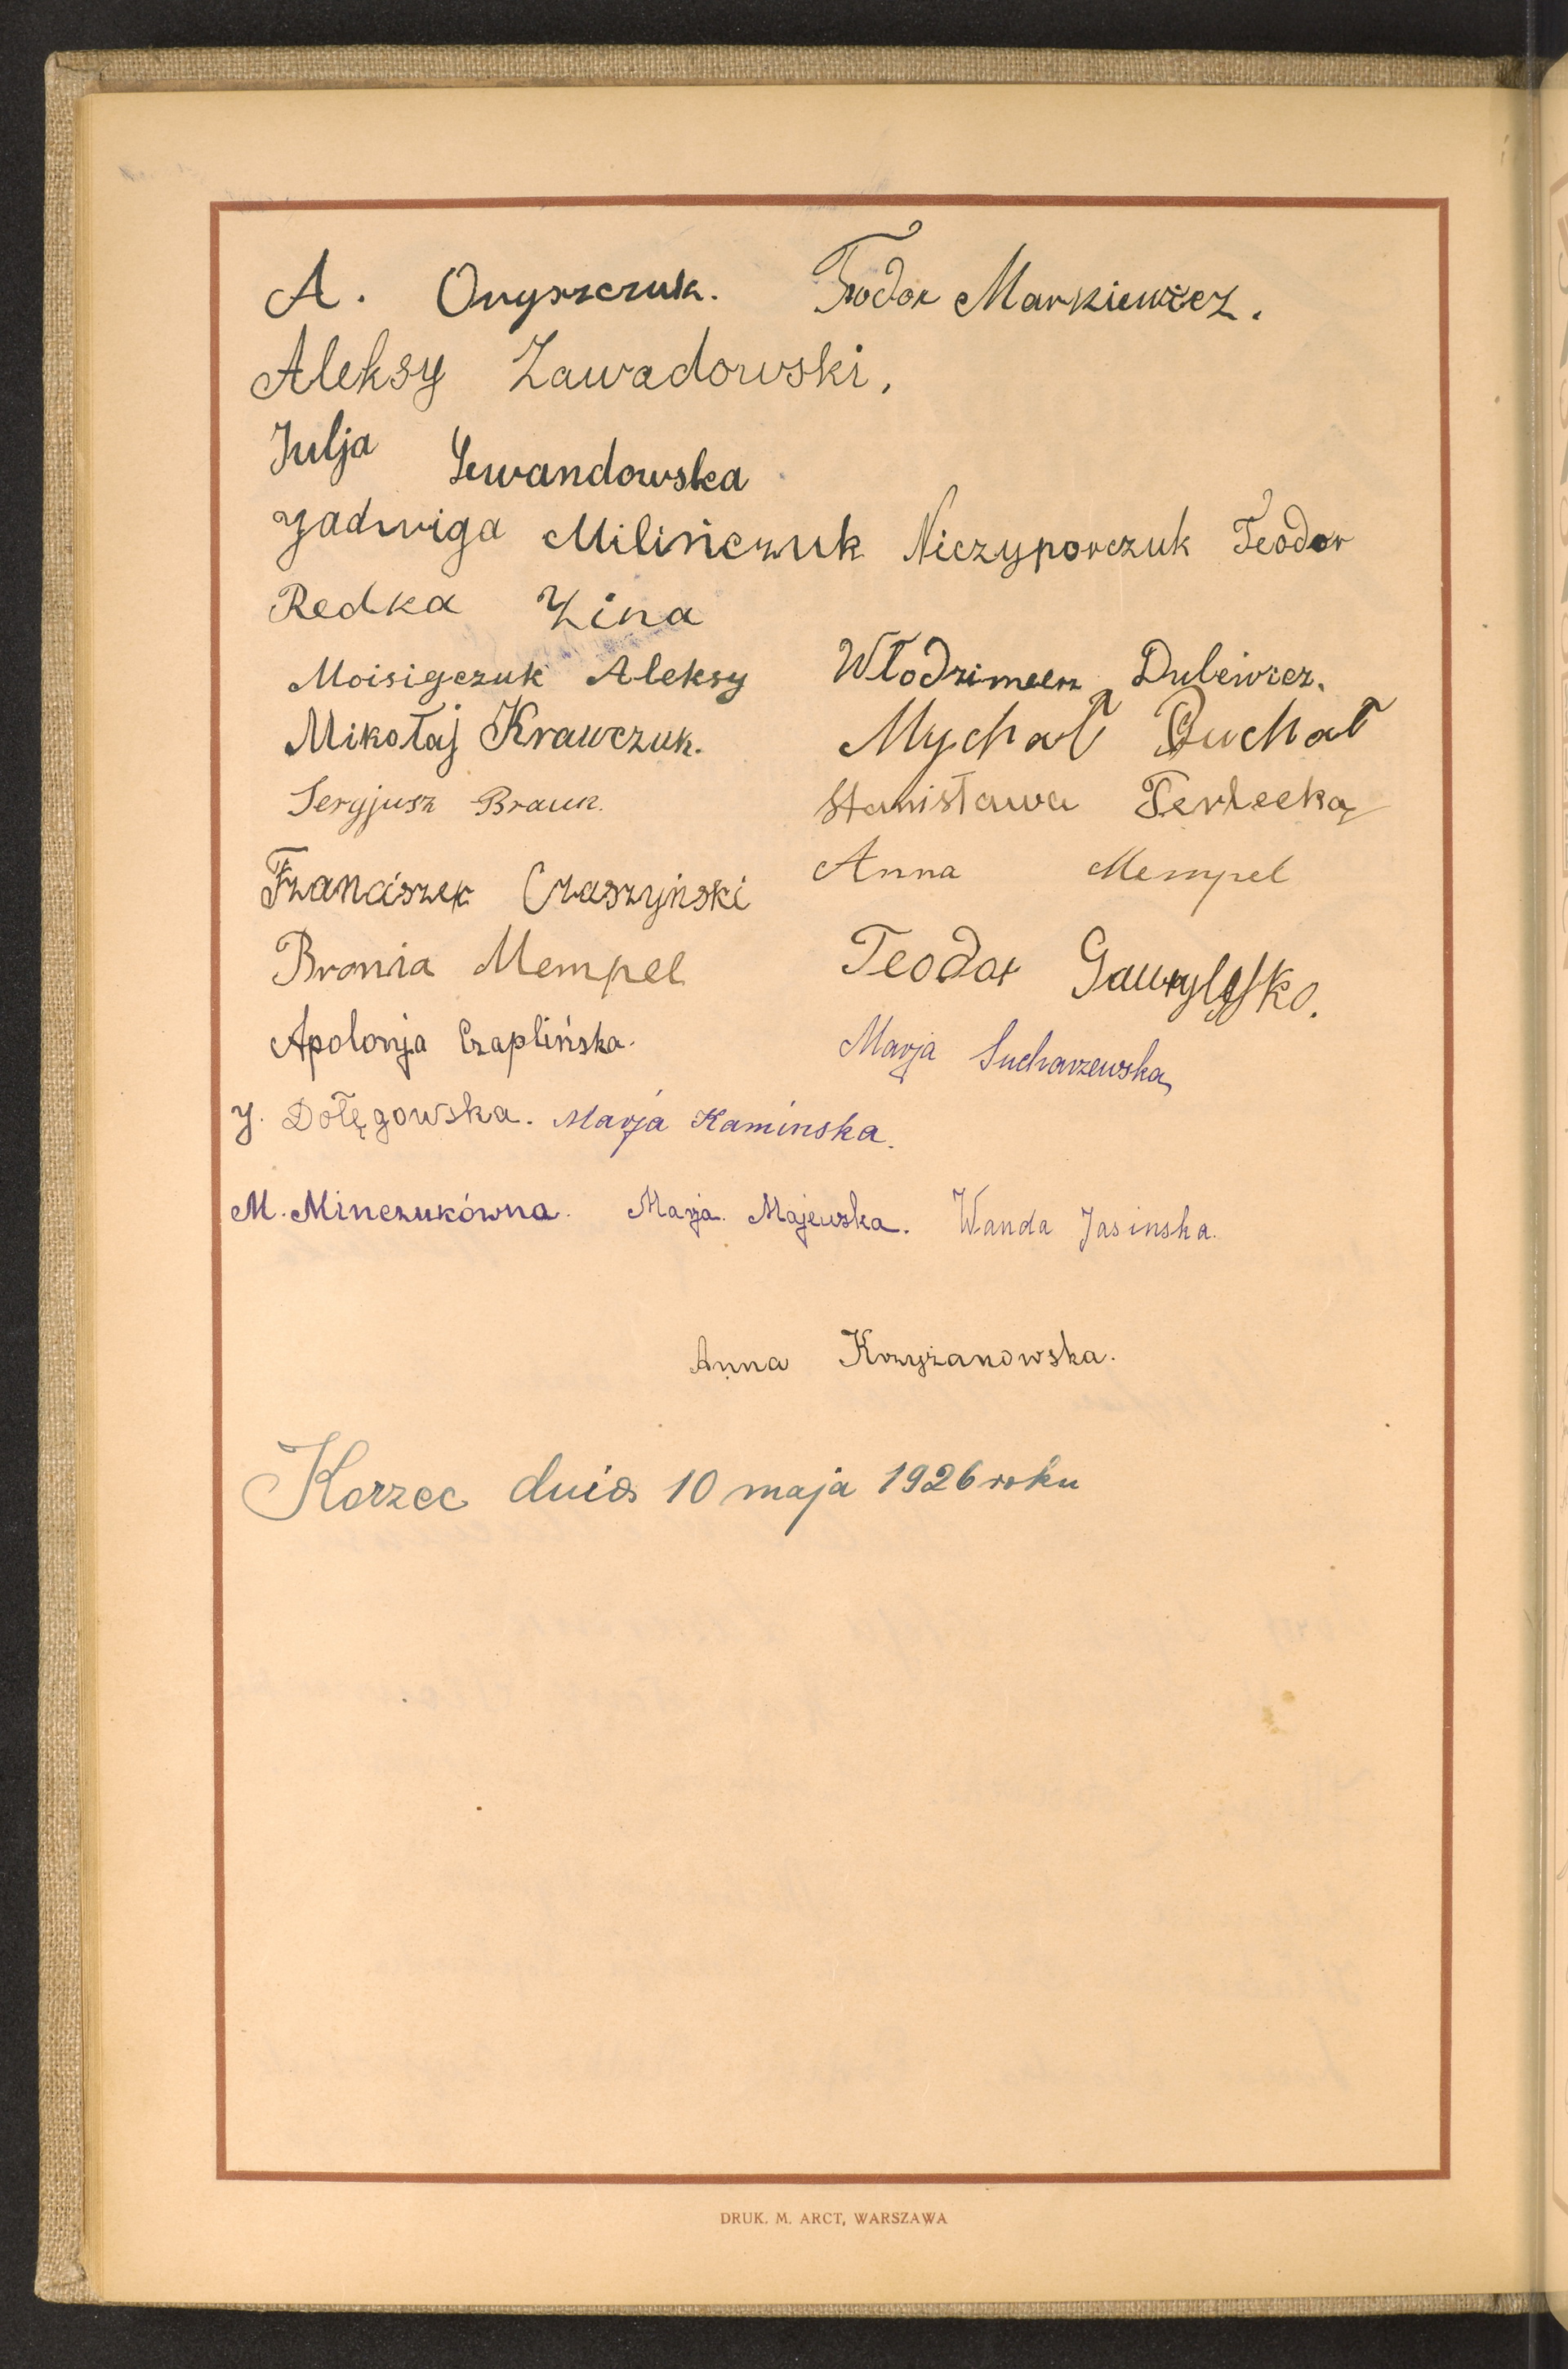 A. Onyszczuk. Teodor Markiewicz.
Aleksy Zawadowski.
Julja Lewandowska
Jadwiga Milińczuk Niczyporczuk Teodor
Redka Zina
Moisigczuk Aleksy Włodzimierz Dulewicz.
Mikołaj Krawczuk. Mychał Puchał
Sergjusz Braun. Stanisława Terlecka
Franciszek Czaszyński Anna Mempel
Bronia Mempel Teodor
Apolonja Czaplińska. Marja Sucharzewska
J. Dołęgowska. Marja Kaminska.
M. Minczukówna. Marja Majewska. Wanda Jasinska.
Anna Krzyżanowska.
Korzec dnia 10 maja 1926 roku
DRUK. M. ARCT, WARSZAWA